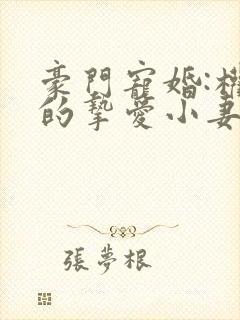 豪門寵婚:
的摯愛小妻
張夢根